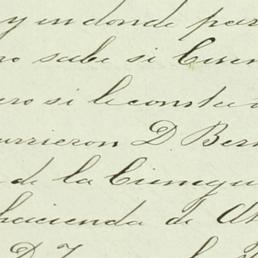 y en donde par
no sabe si Cien
ero si le consta
urrieron D. Ber
de la Cienegu
hacienda de
D. J